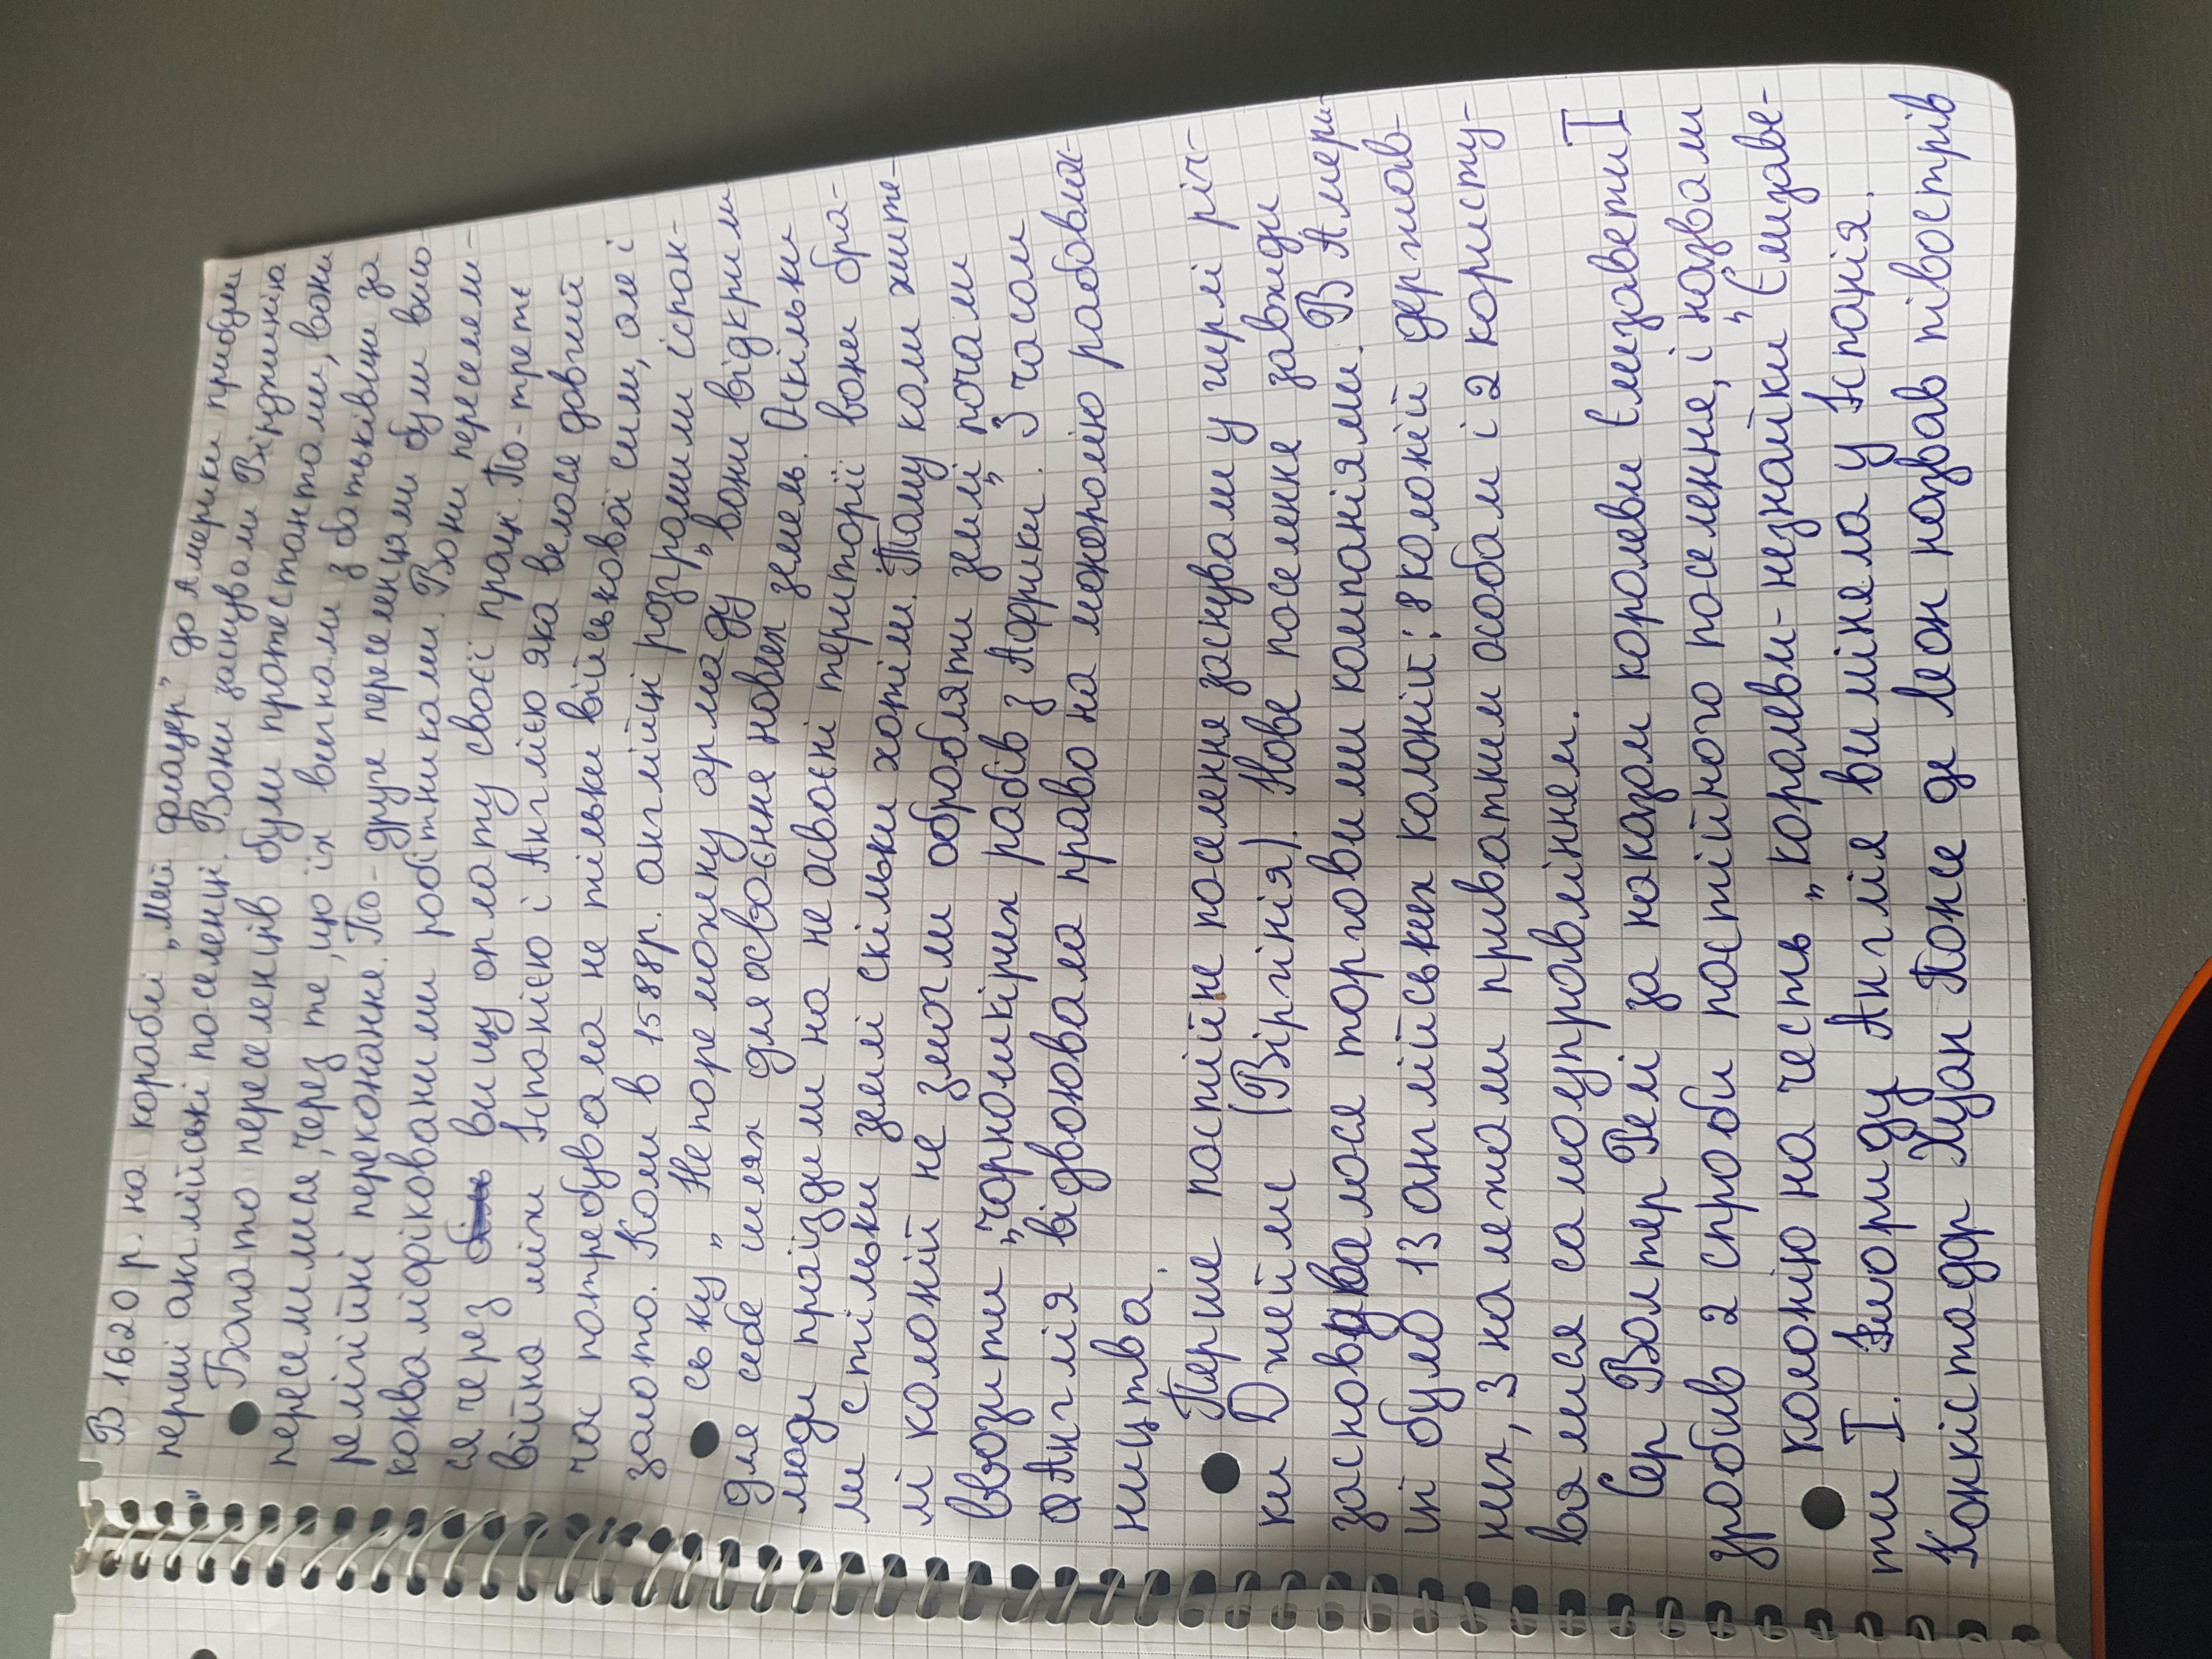 В 1620 р. на кораблі „Мей флауер" до Америки прибули
" перші англійські поселенці. Вони заснували Вірджинію
Багато переселенців були протестантами, вони
переселились, через те, що їх вигнали з батьківщи за
релігійні переконання. По-друге переселенцями були висо-
кокваліфікованими робітниками. Вони переселели-
ся через вищу оплату своєї праці. По-третє
війна між Іспанією і Англією яка велася довгий
час потребувала не тільки військової сили, але і
золото. Коли в 1588р. англійці розгромили іспан-
ську „Непереможну армаду" вони відкрили
для себе шлях для освоєння нових земель. Оскільки
люди приїздили на не освоєні території вони бра-
ли стільки землі скільки хотіли. Тому коли жите-
лі колоній не змогли обробляти землі почали
ввозити „чорношкірих" рабів з Африки. З часом
Англія відвоювала право на монополію рабовлас-
ництва.
Перше постійне поселення заснували у гирлі річ-
ки Джеймс (Віргінія). Нове поселення завжди
засновувалося торговими компаніями. В Амери-
ці було 13 англійських колоній: 8 колоній держав-
них, 3 належали приватним особам і 2 користу-
валися самоуправлінням.
Сер Волтер Релі за наказом королеви Єлизавети I
зробив 2 спроби постійного поселення, і назвали
колонію на честь „королеви-незнайки" Єлизаве-
ти I. Флориду Англія виміняла у Іспанія.
Конкістадор Хуан Понсе де Леон назвав півострів